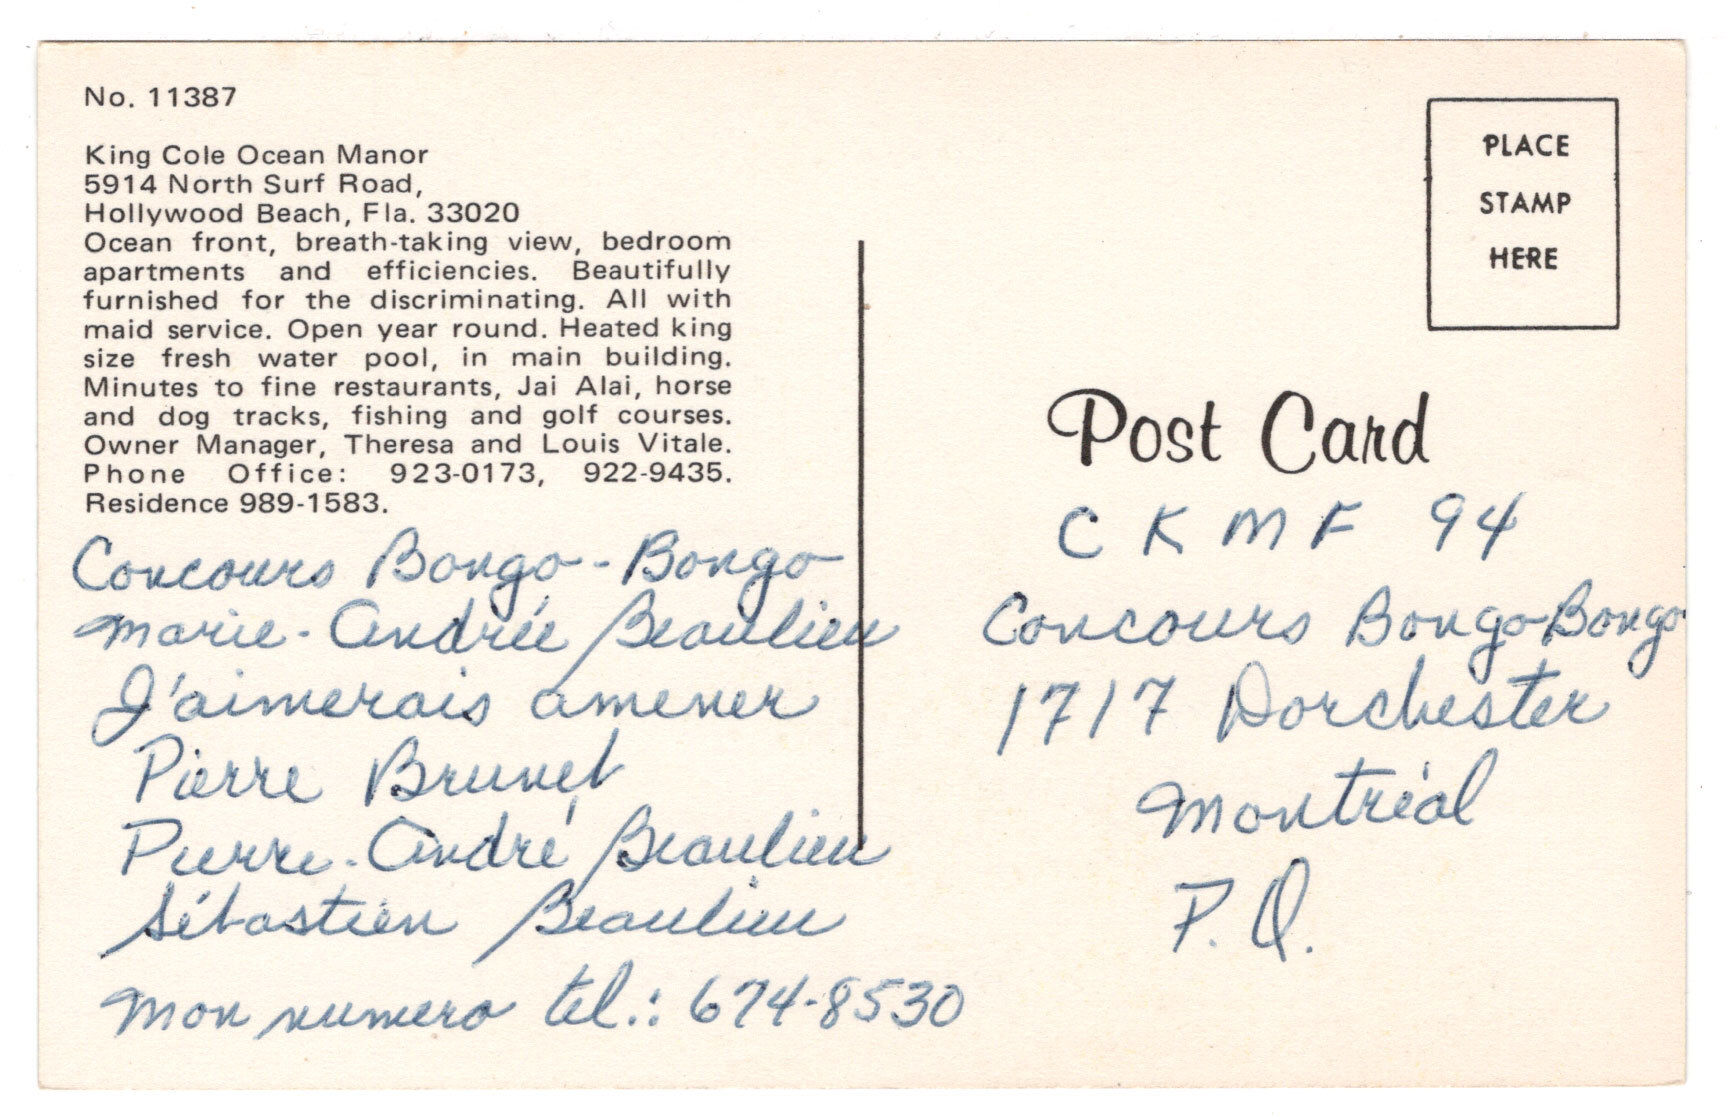 No. 11387
King Cole Ocean Manor
5914 North Surf Road,
Hollywood Beach, Fla. 33020
Ocean front, breath-taking view, bedroom
apartments and efficiencies. Beautifully
furnished for the discriminating. All with
maid service. Open year round. Heated king
size fresh water pool, in main building.
Minutes to fine restaurants, Jai Alai, horse
and dog tracks, fishing and golf courses.
Owner Manager, Theresa and Louis Vitale.
Phone Office: 923-0173, 922-9435.
Residence 989-1583.
Concours Bongo-Bongo
Marie-Andrée Beaulieu
J'aimerais amener
Pierre Brunet
Pierre-André Beaulieu
Sébastien Beaulieu
Mon numero tel.: 674-8530
PLACE
STAMP
HERE
Post Card
C K M F 94
Concours Bongo-Bongo
1717 Dorchester
Montréal
P. Q.